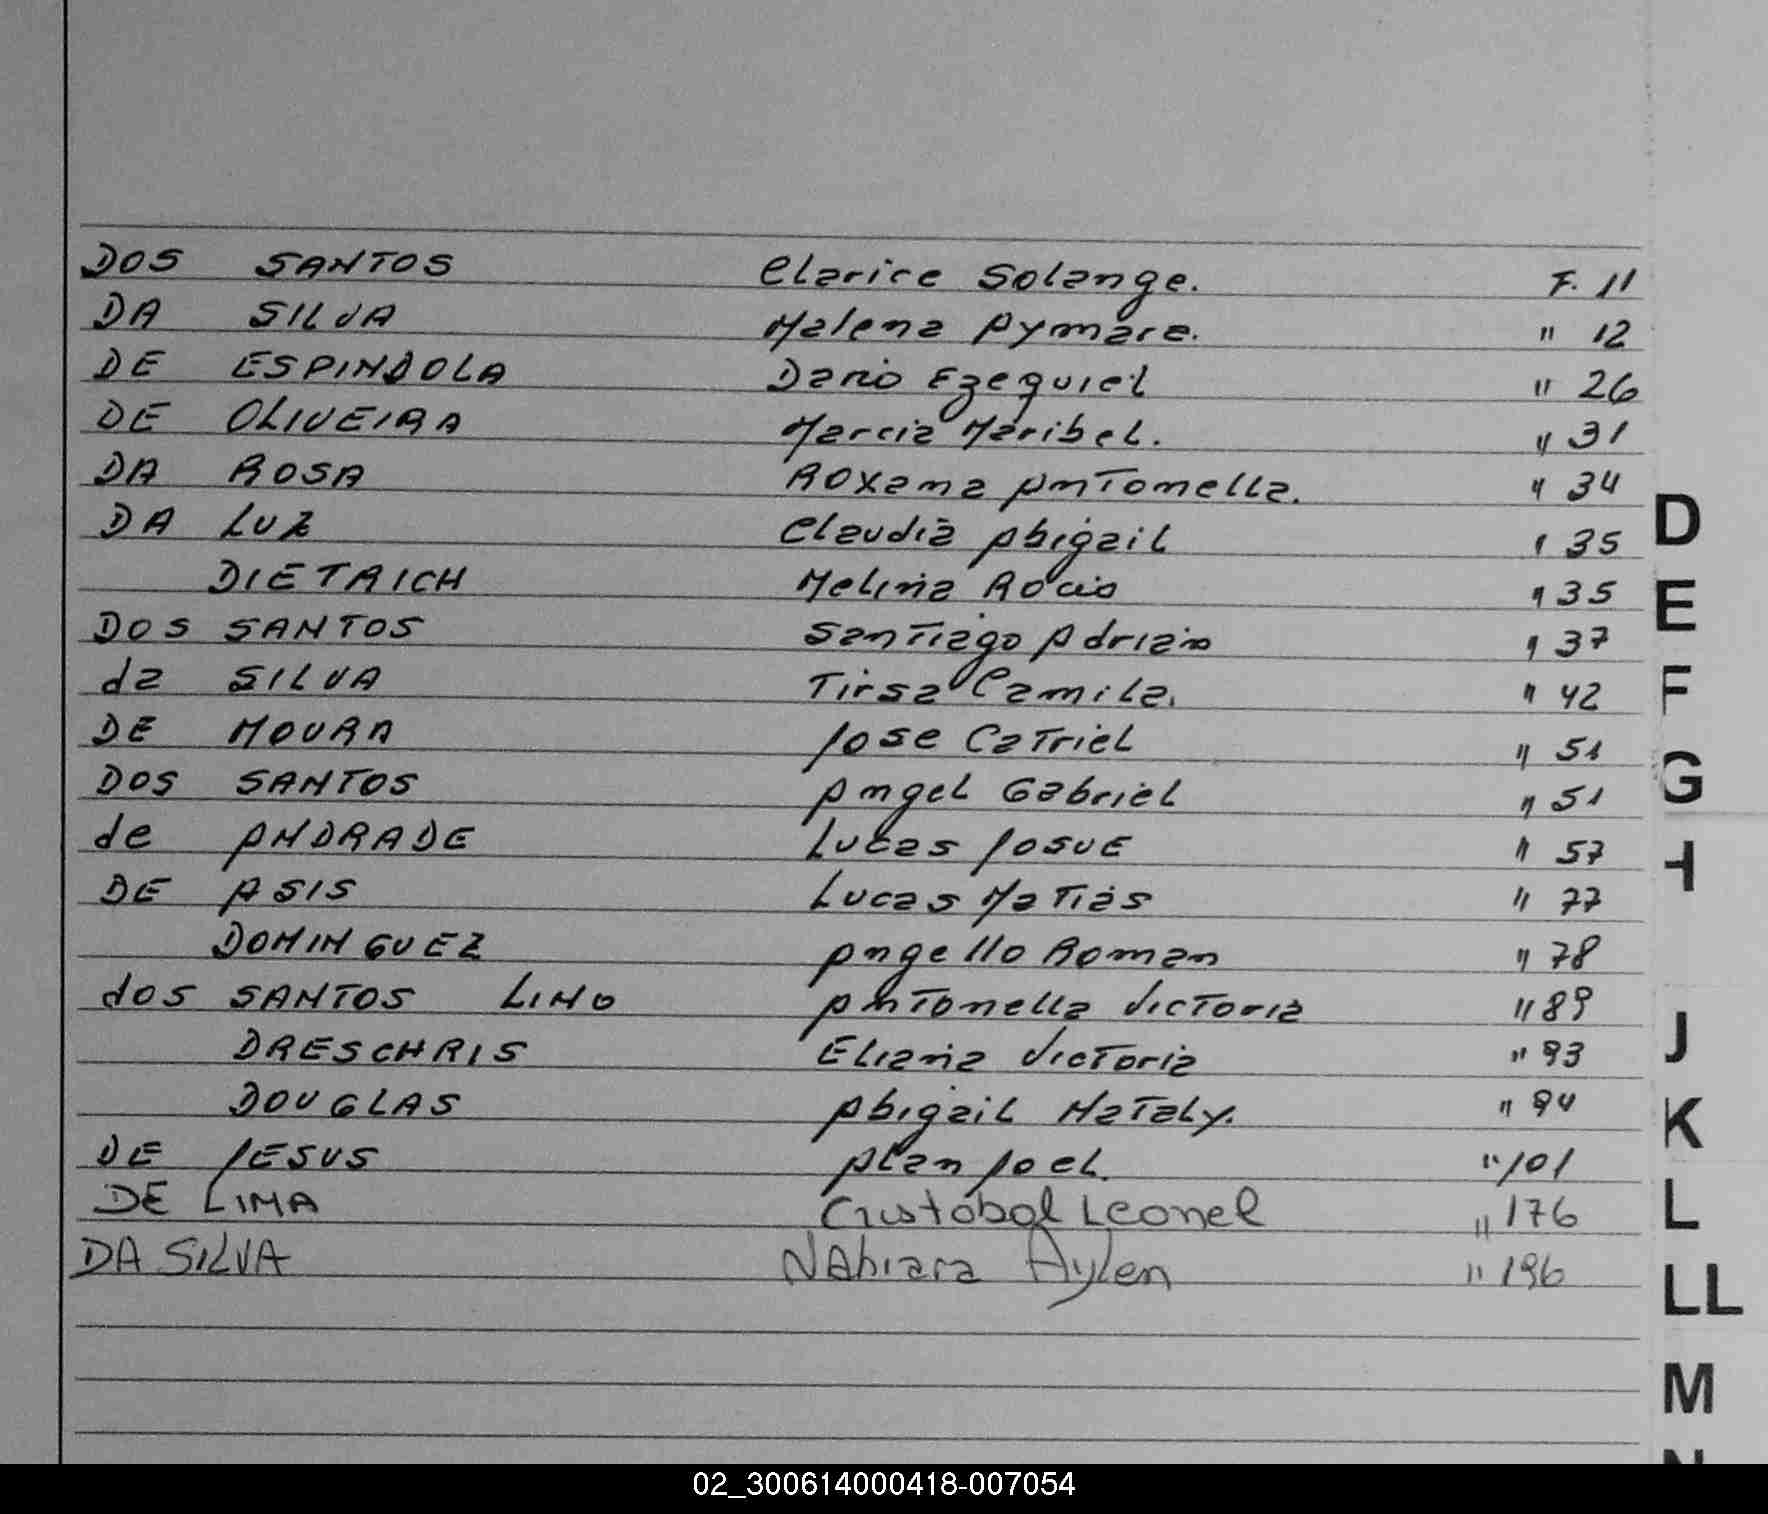 DOS SANTOS Clarice Solange. F. 11
DA SILVA Malena Aymara. " 12
DE ESPINDOLA Dario Ezequiel " 26
DE OLIVEIRA Marcia Maribel. " 31
DA ROSA Roxana Antonella. " 34
DA LUZ Claudia Abigail " 35
DIETRICH Melina Rocio " 35
DOS SANTOS Santiago Adrian " 37
da SILVA Tirsa Camila. " 42
DE MOURA Jose Catriel " 51
DOS SANTOS Angel Gabriel " 51
de ANDRADE Lucas Josue " 57
DE ASIS Lucas Matias " 77
DOMINGUEZ Angello Roman " 78
dos SANTOS LINO Antonella Victoria " 89
DRESCHRIS Eliana Victoria " 93
DOUGLAS Abigail Nataly. " 94
DE JESUS Alan Joel. " 101
DE LIMA Cristóbal Leonel " 176
DA SILVA NAhiara Aylen " 196
D
E
F
G
H
J
K
L
LL
M
N
02_300614000418-007054